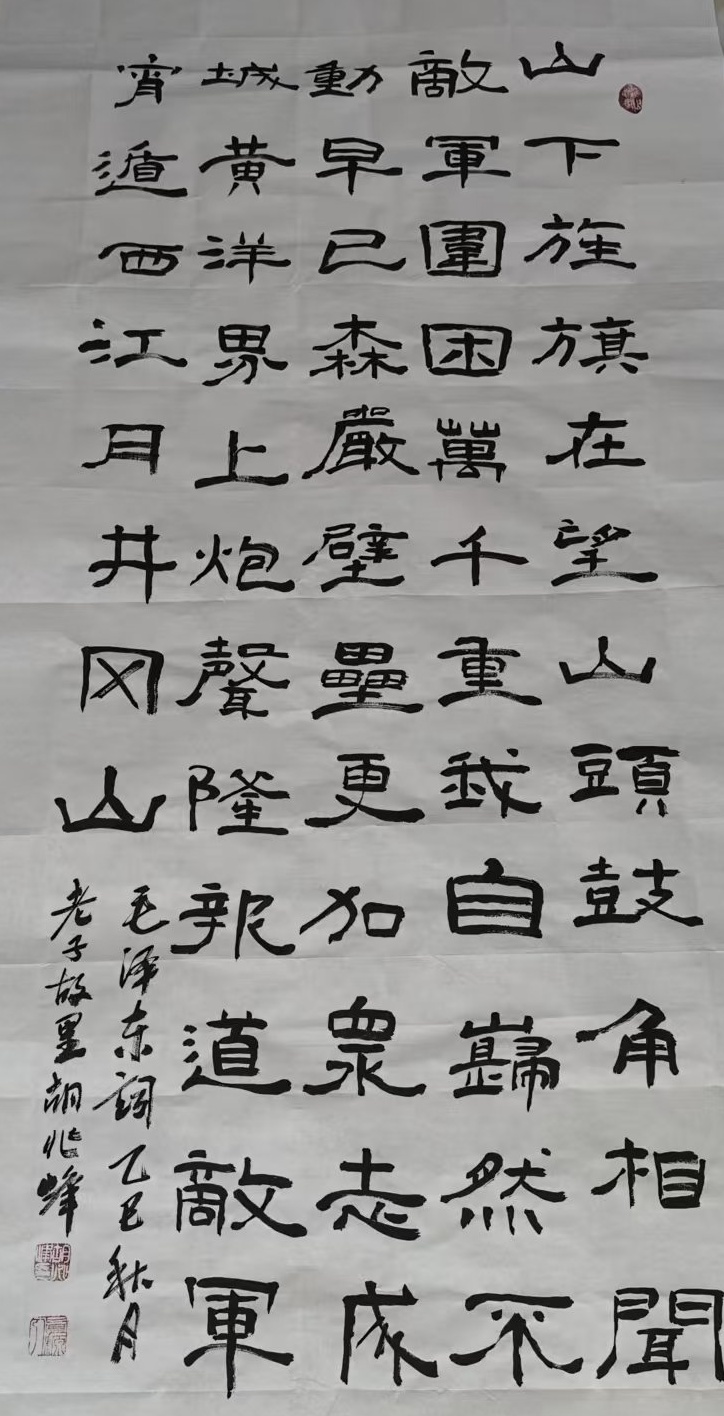 山下旌旗在望山頭鼓角相聞
敵軍圍困萬千重我自巋然不
動早已森嚴壁壘更加衆志成
城黃洋界上炮聲隆報道敵軍
宵遁西江月井冈山
毛泽东詞乙巳秋月
老子故里胡兆峰